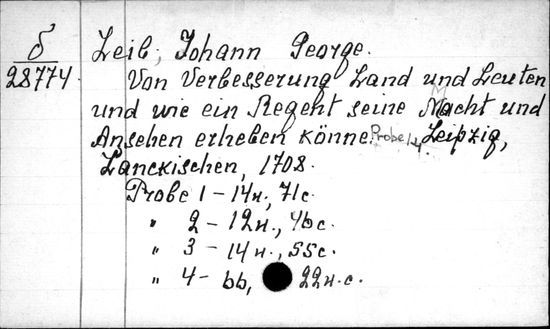 δ
28774
Leib, Johann George.
Von Verbesserung Land und Leuten
und wie ein Regent seine Macht und
Ansehen erheben könne. Probe 1-4. Leipzig,
Lanckischen, 1708.
Probe 1 – 14н., 71с.
" 2 – 12н., 46с.
" 3 – 14н., 55с.
" 4 – 66, 22н.с.